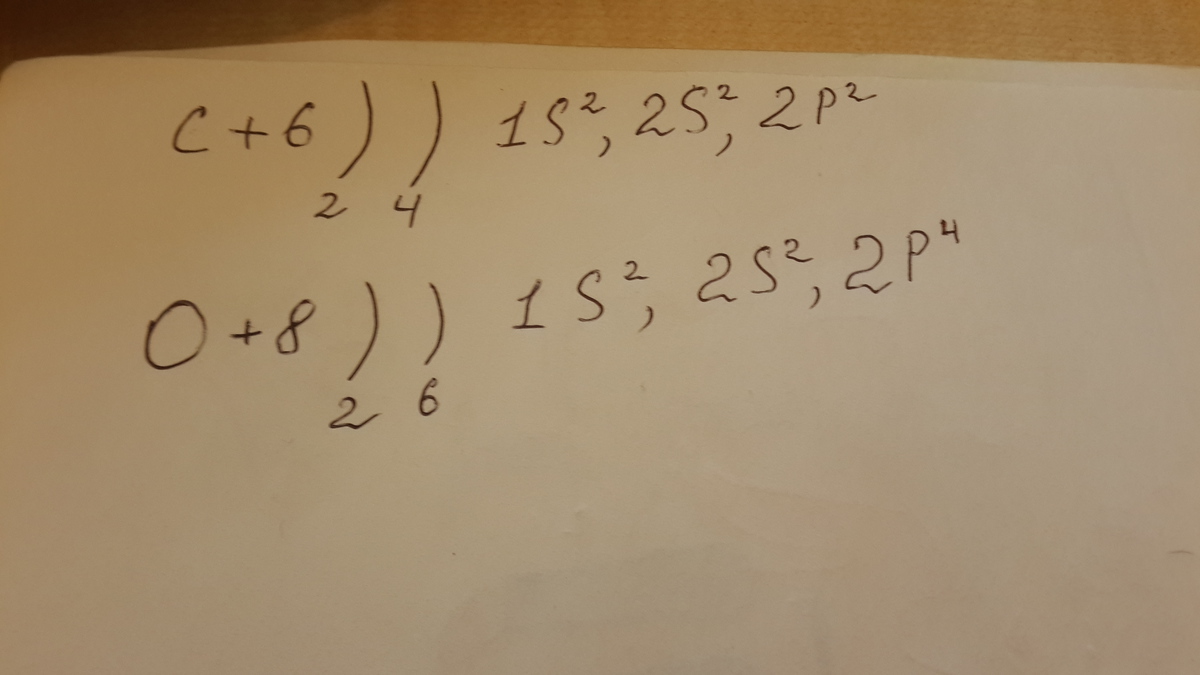 C +6 ) ) 1S², 2S², 2P²
2 4
O +8 ) ) 1S², 2S², 2P⁴
2 6